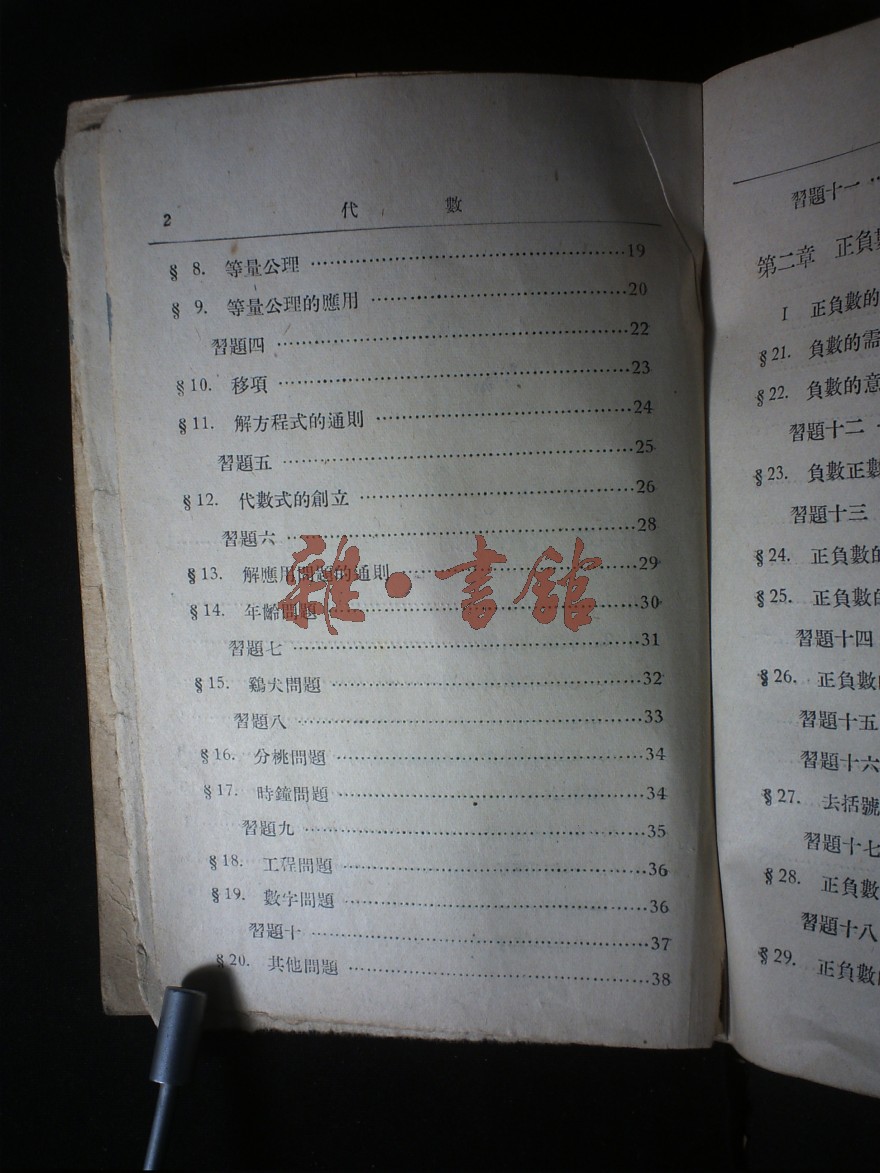 2 代 數
§ 8. 等量公理 ……………………………19
§ 9. 等量公理的應用 ……………………………20
習題四 ……………………………22
§10. 移項 ……………………………23
§11. 解方程式的通則 ……………………………24
習題五 ……………………………25
§12. 代數式的創立 ……………………………26
習題六 ……………………………28
§13. 解應用問題的通則 ……………………………29
§14. 年齡問題 ……………………………30
習題七 ……………………………31
§15. 鷄犬問題 ……………………………32
習題八 ……………………………33
§16. 分桃問題 ……………………………34
§17. 時鐘問題 ……………………………34
習題九 ……………………………35
§18. 工程問題 ……………………………36
§19. 數字問題 ……………………………36
習題十 ……………………………37
§20. 其他問題 ……………………………38
雜·書館
習題十一
第二章 正負
I 正負數的
§21. 負數的需
§22. 負數的意
習題十二
§23. 負數正數
習題十三
§24. 正負數的
§25. 正負數的
習題十四
§26. 正負數
習題十五
習題十六
§27. 去括號
習題十七
§28. 正負數
習題十八
§29. 正負數